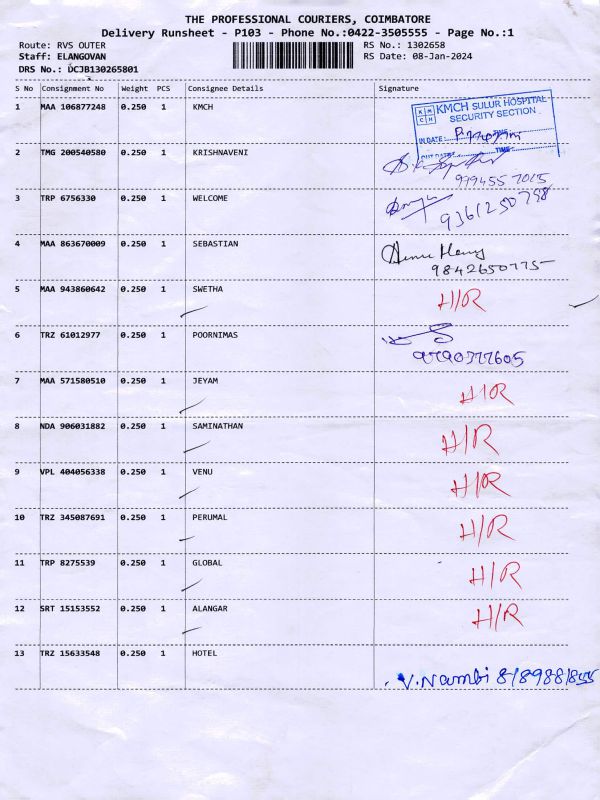 THE PROFESSIONAL COURIERS, COIMBATORE
Delivery Runsheet - P103 - Phone No.:0422-3505555 - Page No.:1
Route: RVS OUTER RS No.: 1302658
Staff: ELANGOVAN RS Date: 08-Jan-2024
DRS No.: DCJB130265801
S No Consignment No Weight PCS Consignee Details Signature
1 MAA 106877248 0.250 1 KMCH
KMCH SULUR HOSPITAL
SECURITY SECTION
IN DATE: TIME:
OUT DATE: TIME:
2 TMG 200540580 0.250 1 KRISHNAVENI
9994557025
3 TRP 6756330 0.250 1 WELCOME
9361250758
4 MAA 863670009 0.250 1 SEBASTIAN
9842650775
5 MAA 943860642 0.250 1 SWETHA H/R
6 TRZ 61012977 0.250 1 POORNIMAS
9790377605
7 MAA 571580510 0.250 1 JEYAM H/R
8 NDA 906031882 0.250 1 SAMINATHAN H/R
9 VPL 404056338 0.250 1 VENU H/R
10 TRZ 345087691 0.250 1 PERUMAL H/R
11 TRP 8275539 0.250 1 GLOBAL H/R
12 SRT 15153552 0.250 1 ALANGAR H/R
13 TRZ 15633548 0.250 1 HOTEL
V. Nambi